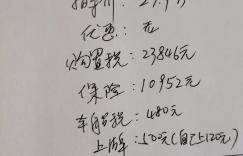 优惠：无
购置税：23846元
保险：10952元
车船税：480元
上牌：500元(自己上120元)